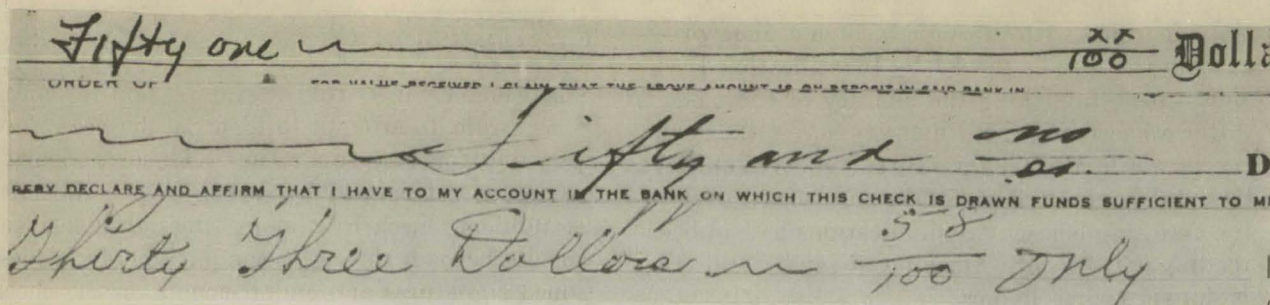 Fifty one xx/100 Dolla
ORDER OF FOR VALUE RECEIVED I CLAIM THAT THE ABOVE AMOUNT IS ON DEPOSIT IN SAID BANK IN
Fifty and no/ D
REBY DECLARE AND AFFIRM THAT I HAVE TO MY ACCOUNT IN THE BANK ON WHICH THIS CHECK IS DRAWN FUNDS SUFFICIENT TO M
Thirty Three Dollars 58/100 Only